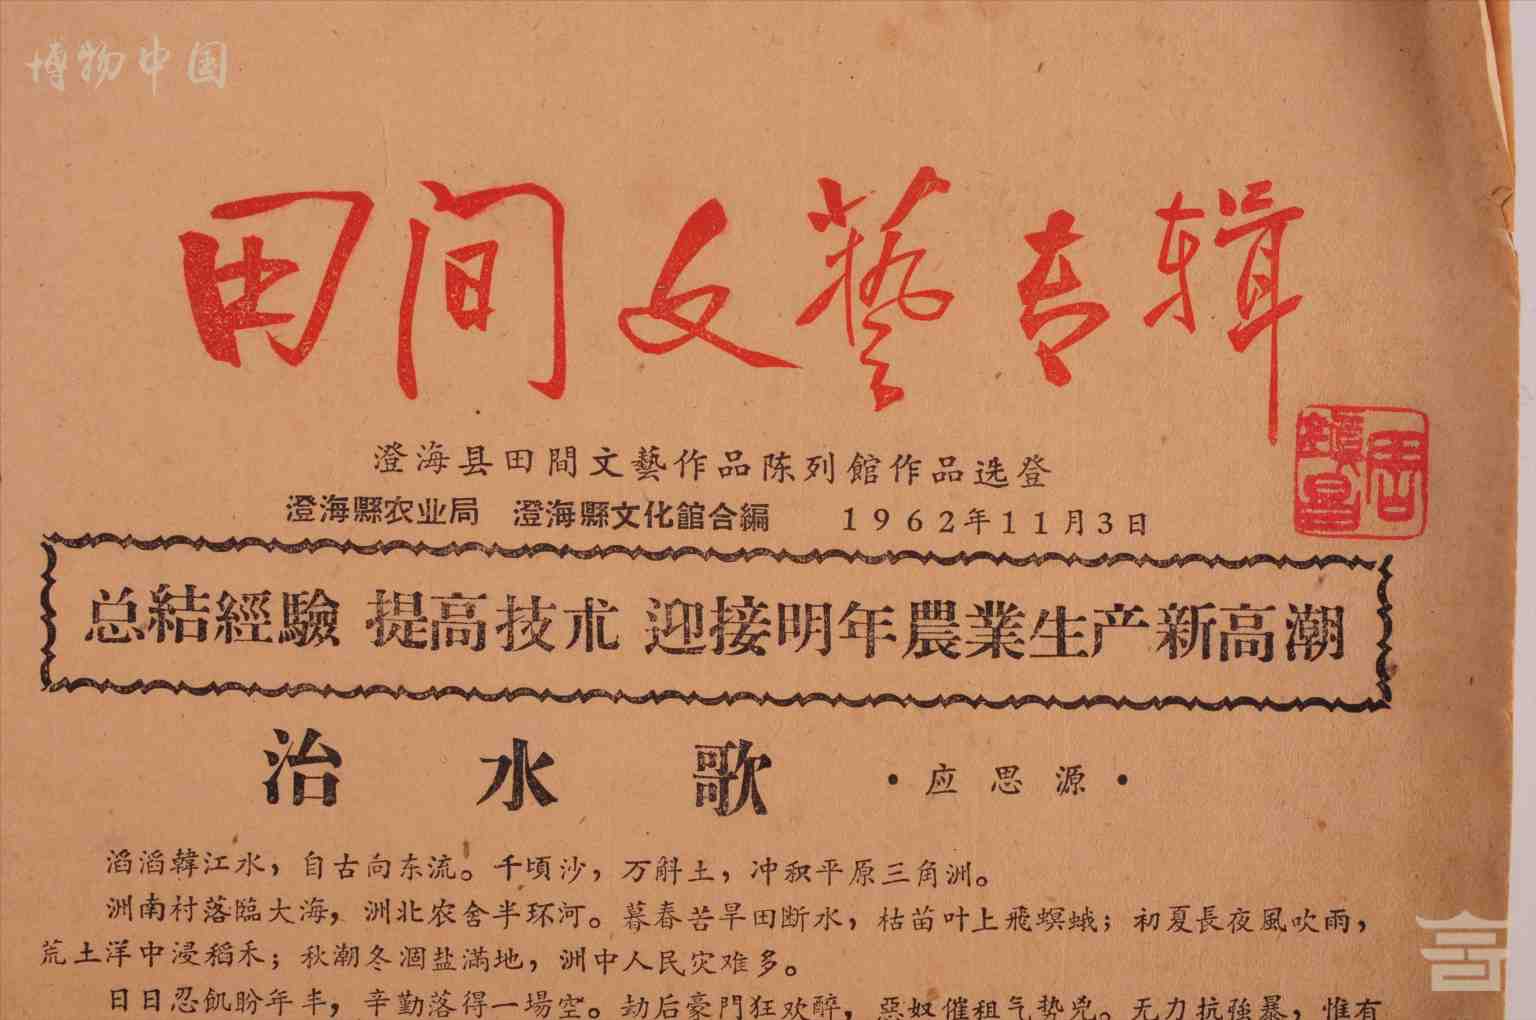 博物中国
田间文藝专辑
澄海县田間文藝作品陈列館作品选登
澄海縣农业局 澄海縣文化館合編 1962年11月3日
总結經驗 提高技朮 迎接明年農業生产新高潮
治水歌 ·应思源·
滔滔韓江水，自古向东流。千頃沙，万斛土，冲积平原三角洲。
洲南村落臨大海，洲北农舍半环河。暮春苦旱田断水，枯苗叶上飛螟蛾；初夏長夜風吹雨，
荒土洋中浸稻禾；秋潮冬涸盐滿地，洲中人民灾难多。
日日忍飢盼年丰，辛勤落得一場空。劫后豪門狂欢醉，惡奴催租气势兇。无力抗強暴，惟有